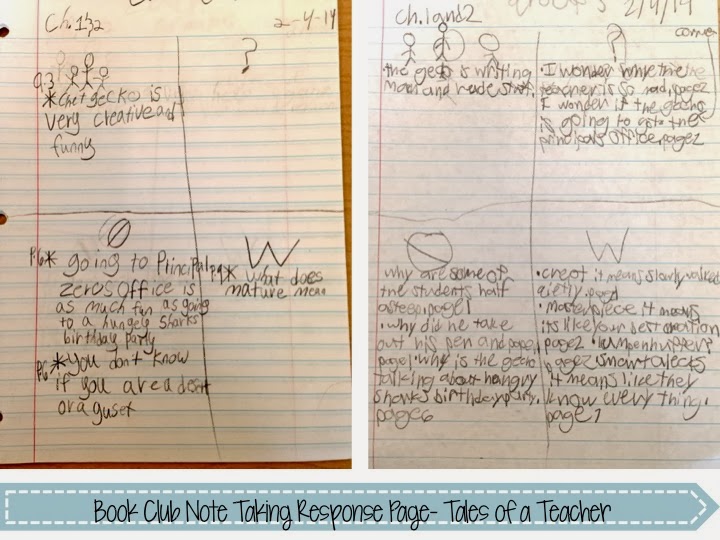 Ch. 1,2
2-4-14
?
q.3
*chet gecko is
very creative and
funny
P.6* going to Principal
zeros office is
as much fun as going
to a hungery sharks
birthday party
P6 *You don't know
if you are a desert
or a guset
W
p.9* what does
mature mean
ch. 1 and 2
2/4/14
?
the gecko is writing
mean and rude stuff.
• I wonder why the
teacher is so mad, page 2
I wonder if the gecko
is going to
principals office, page 2
why are some of
the students half
asleep. page 1
• why did he take
out his pen and
page 1 • why is the gecko
talking about hungry
sharks birthday party.
page 6
W
• crept it means slowly walked
quietly.
• masterpiece it means
its like your best creation
page 2 •
page 2 smart alecks
it means like they
know every thing.
page 1
Book Club Note Taking Response Page- Tales of a Teacher